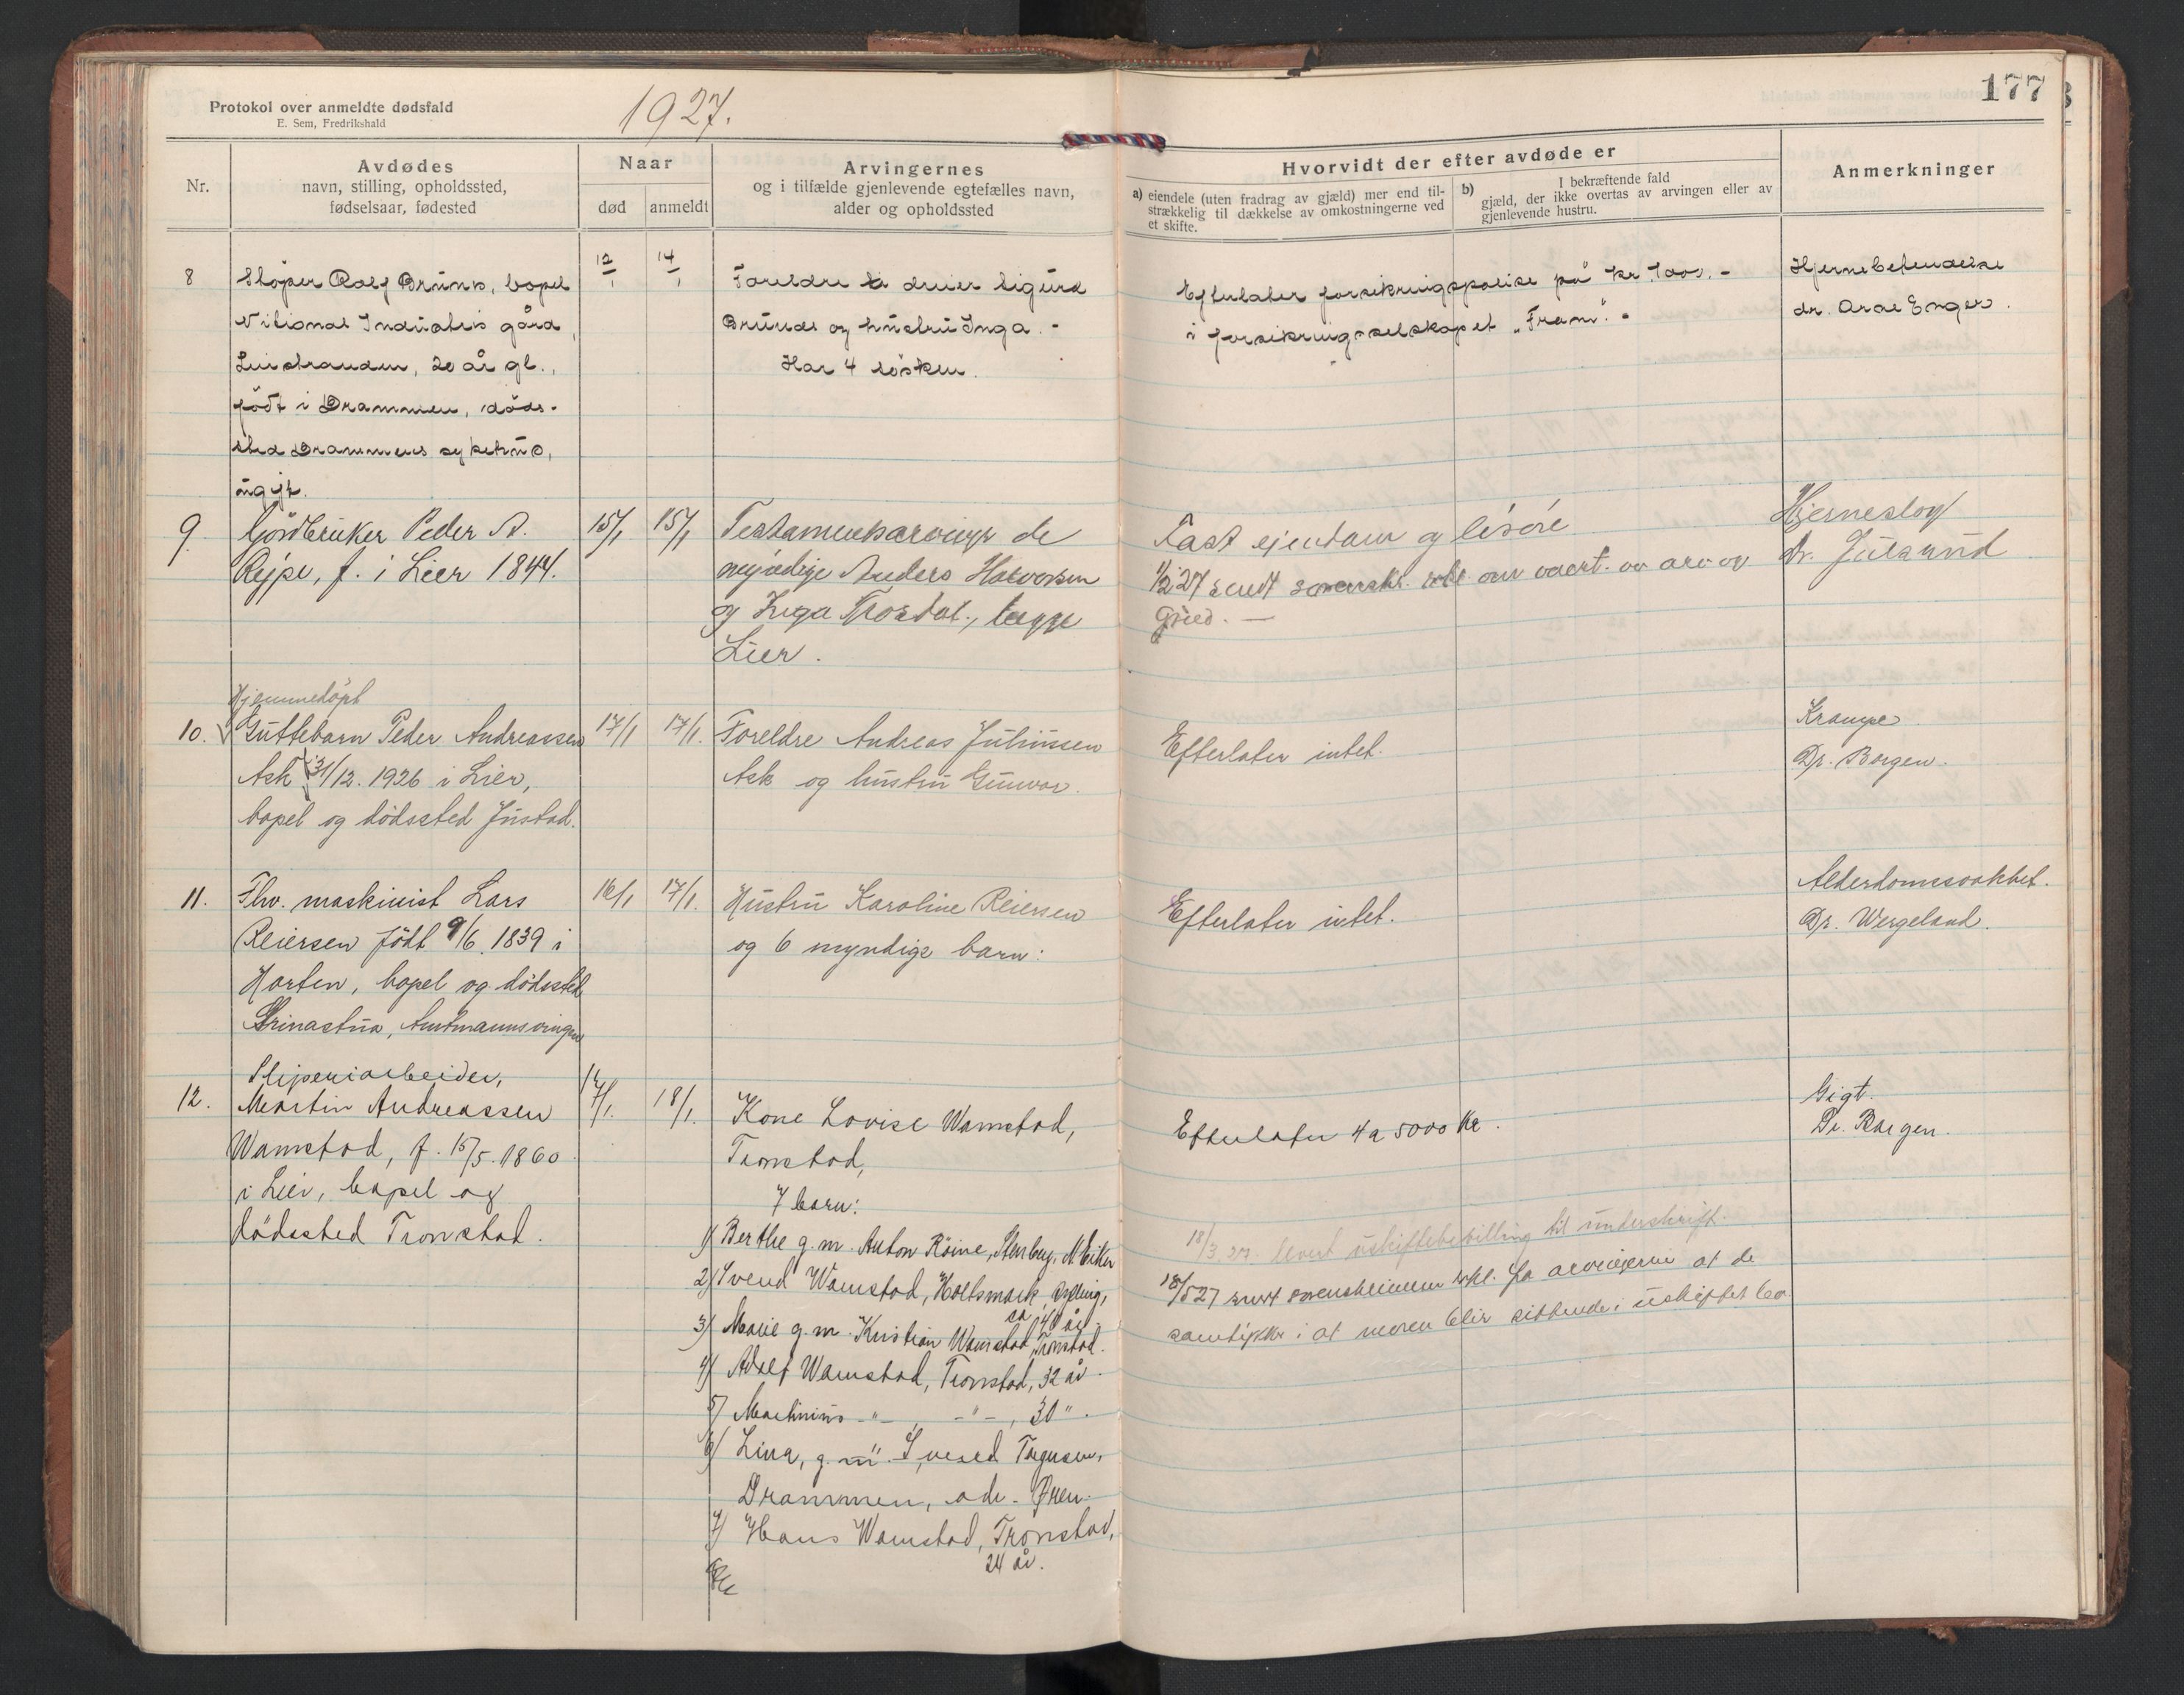 Protokol over anmeldte dødsfald
E. Sem, Fredrikshald
1927.
177
Nr.
Avdødes
navn, stilling, opholdssted,
fødselsaar, fødested
Naar
død
anmeldt
Arvingernes
og i tilfælde gjenlevende egtefælles navn,
alder og opholdssted
Hvorvidt der efter avdøde er
a) eiendele (uten fradrag av gjæld) mer end til-
strækkelig til dækkelse av omkostningerne ved
et skifte.
b) I bekræftende fald
gjæld, der ikke overtas av arvingen eller av
gjenlevende hustru.
Anmerkninger
8
Støper Rolf
gård,
Lierstranden, 20 år gl.,
født i Drammen, døds-
sted Drammens sykehus,
ugift.
12/1
14/1
Foreldre
og hustru Inga. -
Har 4 søsken.
Efterlater forsikringspolise på kr.
i forsikringsselskapet "Fram". -
Hjernebetendelse
dr. Enger.
9.
Gårdbruker Peder A.
f. i Lier 1844.
15/1
15/1
Testamentsarvinger de
myndige Anders Halvorsen
og Inga begge
Lier.
Fast ejendom og løsøre
Hjerneslag
dr.
Hjemmedöpt
10.
Guttebarn Peder Andreassen
Ask 31/12. 1926 i Lier,
bopel og dödssted Justad.
17/1
17/1.
Foreldre Andreas Juliussen
Ask og hustru Gunvor.
Efterlater intet.
Krampe
Dr. Borgen.
11.
Fhv. maskinist Lars
Reiersen födt 9/6. 1839 i
Horten, bopel og dödssted
Amtmannsvingen
16/1
17/1.
Hustru Karoline Reiersen
og 6 myndige barn:
Efterlater intet.
Alderdomssvakhet.
Dr. Wergeland.
Sliperiarbeider,
12.
Martin Andreassen
Wamstad, f. 15/5. 1860
i Lier, bopel og
dödssted Tronstad.
17/1.
18/1.
Kone Lovise Wamstad,
Tronstad,
7 barn:
1) Berthe g.m. Anton
2) Svend Wamstad, Holtsmark,
ca. 40 år.
3) Marie g.m. Kristian Wamstad, Tronstad.
4) Adolf Wamstad, Tronstad, 32 år.
5) Martinius -"- , -"- , 30 ".
6) Lina, g.m.
Drammen, adr. Øren.
7) Hans Wamstad, Tronstad,
24 år.
Efterlater 4 a 5000 kr.
Gigt.
Dr. Borgen.
18/3 27. levert uskiftebevilling til underskrift.
18/5 27 fra arvingerne at de
samtykker i at moren blir sittende i uskiftet bo.